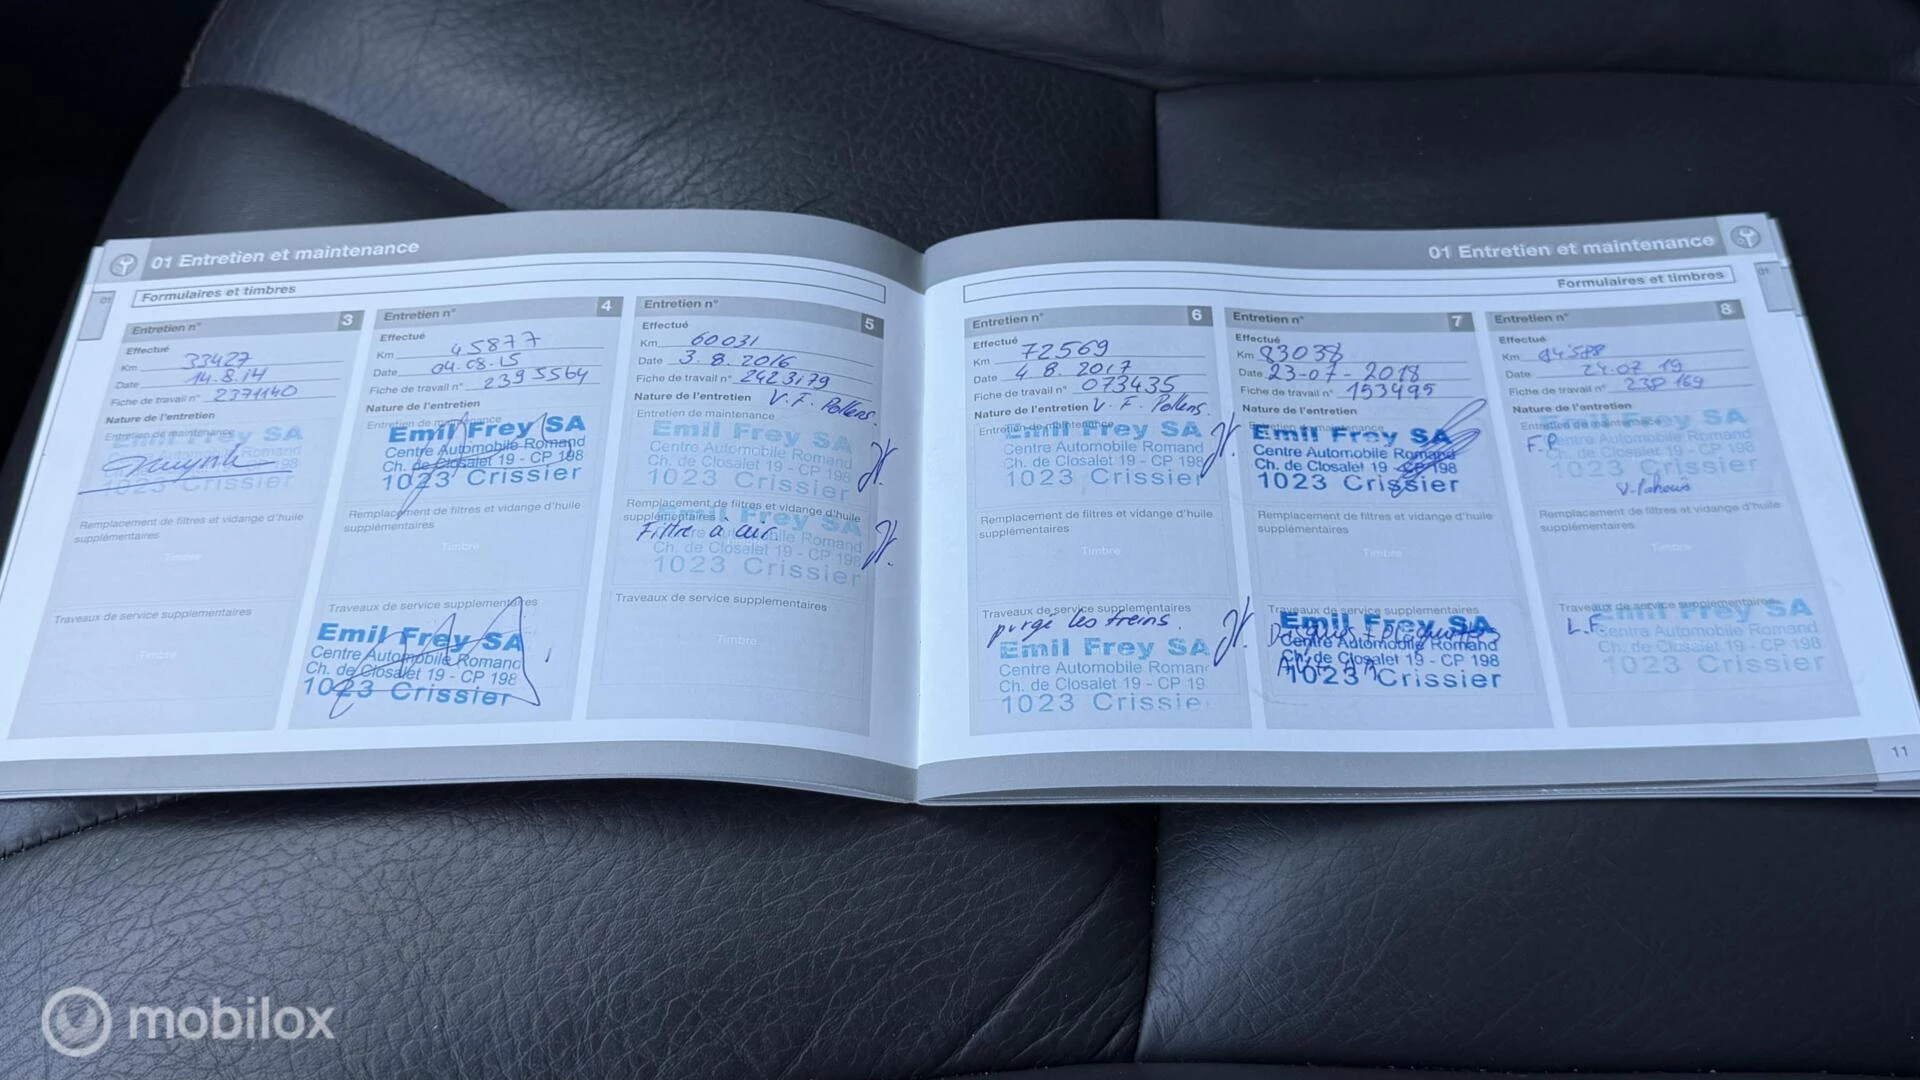 01 Entretien et maintenance
01
Formulaires et timbres
Entretien n° 3
Effectué
Km 33427
Date 14.8.14
Fiche de travail n° 2371140
Nature de l'entretien
Entretien de maintenance
Emil Frey SA
1023 Crissier
Remplacement de filtres et vidange d'huile
supplémentaires
Timbre
Traveaux de service supplementaires
Timbre
Entretien n° 4
Effectué
Km 45877
Date 04.08.15
Fiche de travail n° 2395564
Nature de l'entretien
Entretien de maintenance
Emil Frey SA
Centre Automobile Romand
Ch. de Closalet 19 - CP 198
1023 Crissier
Remplacement de filtres et vidange d'huile
supplémentaires
Timbre
Traveaux de service supplementaires
Emil Frey SA
Centre Automobile Romand
Ch. de Closalet 19 - CP 198
1023 Crissier
Entretien n° 5
Effectué
Km 60031
Date 3.8.2016
Fiche de travail n° 2423179
Nature de l'entretien V. F. Pollens.
Entretien de maintenance
Emil Frey SA
Centre Automobile Romand
Ch. de Closalet 19 - CP 198
1023 Crissier
Remplacement de filtres et vidange d'huile
supplémentaires
Emil Frey SA
Filtre à air
Centre Automobile Romand
Ch. de Closalet 19 - CP 198
1023 Crissier
Traveaux de service supplementaires
Timbre
01 Entretien et maintenance
01
Formulaires et timbres
Entretien n° 6
Effectué
Km 72569
Date 4 8. 2017
Fiche de travail n° 073435
Nature de l'entretien V. F. Pollens.
Entretien de maintenance
Emil Frey SA
Centre Automobile Romand
Ch. de Closalet 19 - CP 198
1023 Crissier
Remplacement de filtres et vidange d'huile
supplémentaires
Timbre
Traveaux de service supplementaires
purgé les freins.
Emil Frey SA
Centre Automobile Romand
Ch. de Closalet 19 - CP 19
1023 Crissie
Entretien n° 7
Effectué
Km 83038
Date 23-07-2018
Fiche de travail n° 153495
Nature de l'entretien
Entretien de maintenance
Emil Frey SA
Centre Automobile Romand
Ch. de Closalet 19 - CP 198
1023 Crissier
Remplacement de filtres et vidange d'huile
supplémentaires
Timbre
Traveaux de service supplementaires
Emil Frey SA
Centre Automobile Romand
Ch. de Closalet 19 - CP 198
1023 Crissier
Entretien n° 8
Effectué
Km
Date 24.07 19
Fiche de travail n°
Nature de l'entretien
Entretien de maintenance
Emil Frey SA
F.P
Centre Automobile Romand
1023 Crissier
Remplacement de filtres et vidange d'huile
supplémentaires
Timbre
Traveaux de service supplementaires
Emil Frey SA
L.F
Centre Automobile Romand
Ch. de Closalet 19 - CP 198
1023 Crissier
11
mobilox